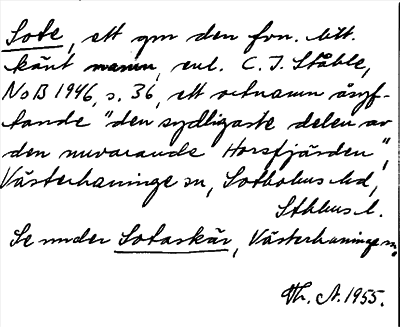 Sote, ett gm den fvn. litt.
känt namn, enl. C. I. Ståhle,
NoB 1946, s. 36, ett ortnamn åsyf-
tande "den sydligaste delen av
den nuvarande Horsfjärden",
Västerhaninge sn, Sotholms hd,
Sthlms l.
Se under Sotaskär, Västerhaninge sn.
Th. A. 1955.